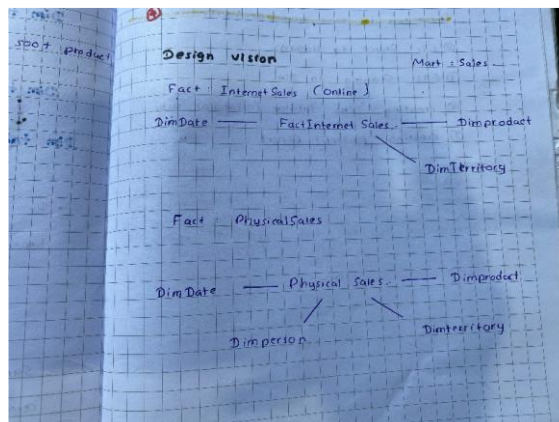 soo+ product
Design vision
Mart : Sales
Fact : Internet Sales (Online)
DimDate FactInternet Sales Dimproduct
DimTerritory
Fact PhysicalSales
DimDate Physical Sales Dimproduct
Dimperson Dimterritory